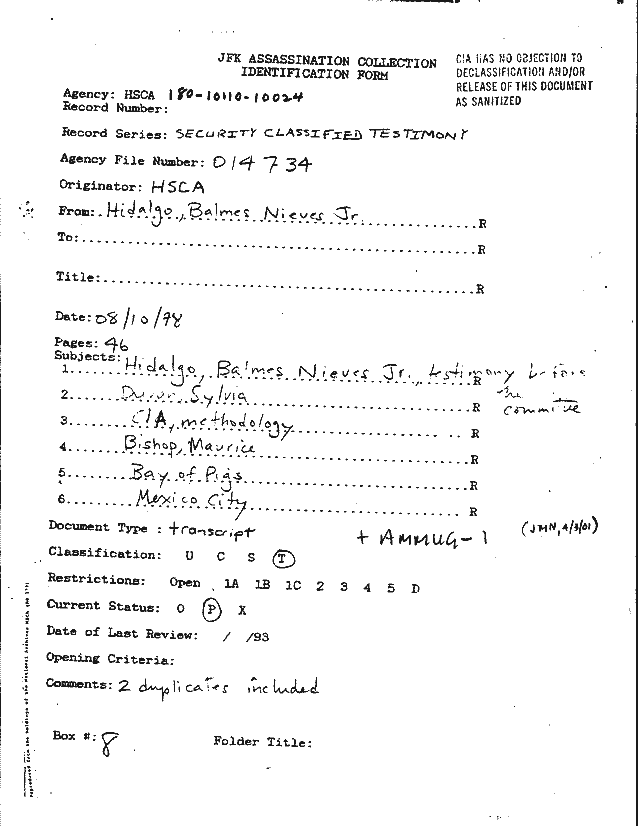 JFK ASSASSINATION COLLECTION
IDENTIFICATION FORM
CIA HAS NO OBJECTION TO
DECLASSIFICATION AND/OR
RELEASE OF THIS DOCUMENT
AS SANITIZED
Agency: HSCA 180-10110-10024
Record Number:
Record Series: SECURITY CLASSIFIED TESTIMONY
Agency File Number: 014734
Originator: HSCA
From: Hidalgo, Balmes Nieves Jr. R
To: R
Title: R
Date: 08/10/78
Pages: 46
Subjects:
1. Hidalgo, Balmes Nieves Jr., testimony before R
the
2. Duran, Sylvia R committee
3. CIA, methodology R
4. Bishop, Maurice R
5. Bay of Pigs R
6. Mexico City R
Document Type : transcript + AMMUG-1 (JMN, 4/3/01)
Classification: U C S T
Restrictions: Open 1A 1B 1C 2 3 4 5 D
Current Status: O P X
Date of Last Review: / /93
Opening Criteria:
Comments: 2 duplicates included
Box #: 8 Folder Title: